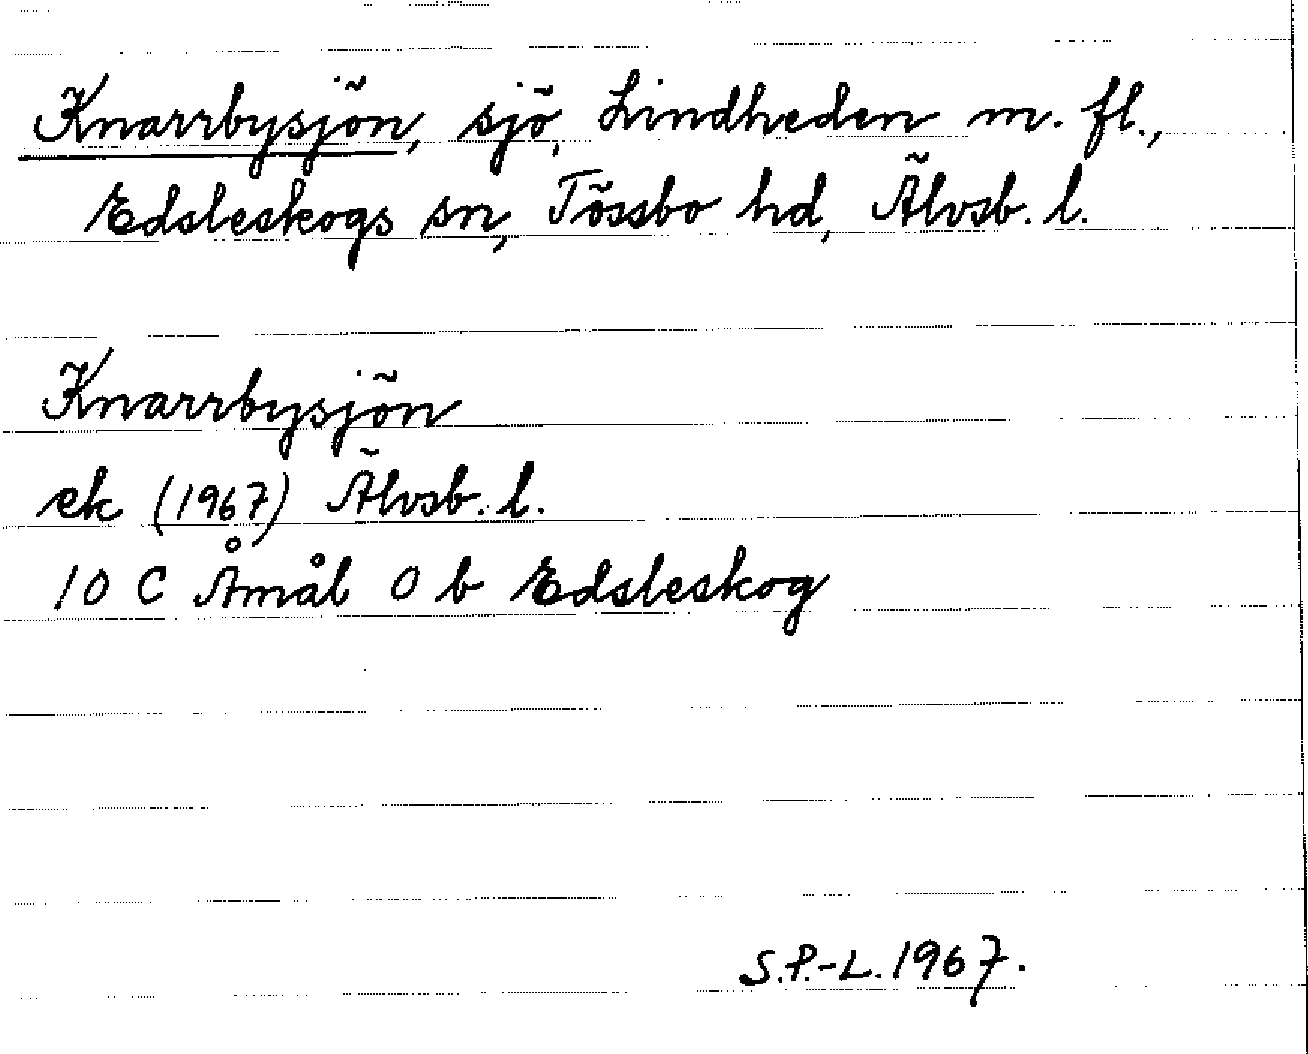 Knarrbysjön, sjö, Lindheden m. fl.,
Edsleskogs sn, Tössbo hd, Älvsb. l.
Knarrbysjön
ek (1967) Älvsb. l.
10 C Åmål 0 b Edsleskog
S.P.-L. 1967.